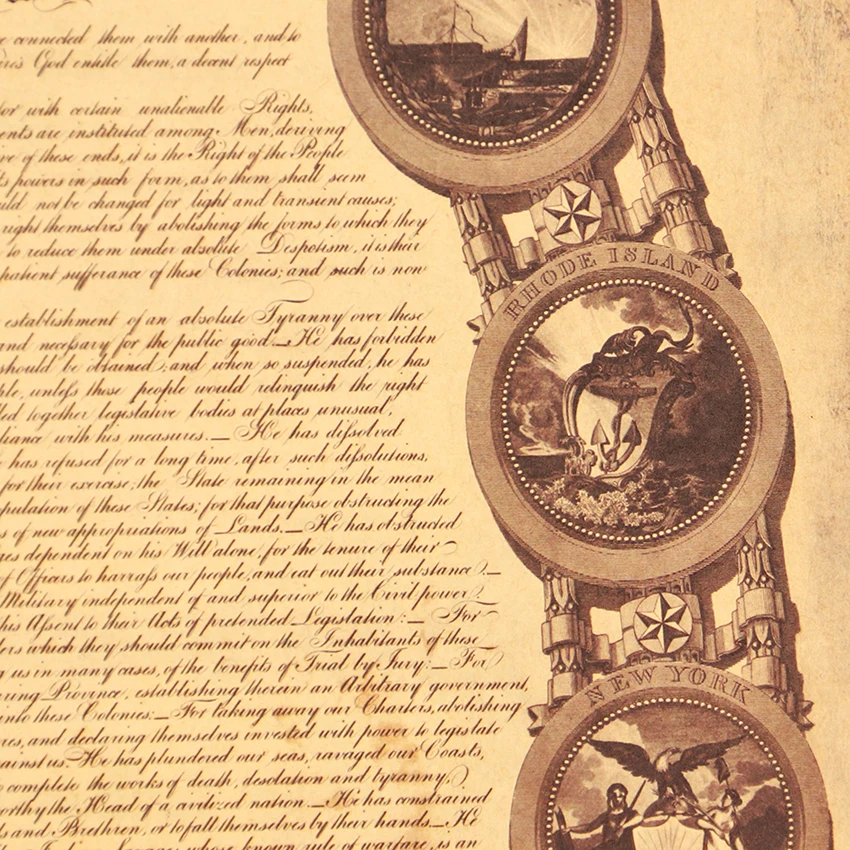 connected them with another, and to
God entitle them, a decent respect
with certain unalienable Rights,
are instituted among Men, deriving
of these ends, it is the Right of the People
powers in such form, as to them shall seem
not be changed for light and transient causes;
right themselves by abolishing the forms to which they
to reduce them under absolute Despotism, it is their
patient sufferance of these Colonies; and such is now
establishment of an absolute Tyranny over these
and necessary for the public good._He has forbidden
should be obtained; and when so suspended, he has
unless those people would relinquish the right
together legislative bodies at places unusual,
with his measures._ He has dissolved
has refused for a long time, after such dissolutions,
for their exercise; the State remaining in the mean
of these States; for that purpose obstructing the
of new appropriations of Lands._ He has obstructed
dependent on his Will alone, for the tenure of their
of Officers to harrass our people, and eat out their substance._
Military independent of and superior to the Civil power.
his Assent to their Acts of pretended Legislation:_ For
which they should commit on the Inhabitants of these
us in many cases, of the benefits of Trial by Jury:_ For
Province, establishing therein an Arbitrary government,
into these Colonies:_ For taking away our Charters, abolishing
and declaring themselves invested with power to legislate
He has plundered our seas, ravaged our Coasts,
complete the works of death, desolation and tyranny,
the Head of a civilized nation._ He has constrained
and Brethren, or to fall themselves by their hands._ He
Savages whose known rule of warfare, is an
RHODE ISLAND
NEW YORK